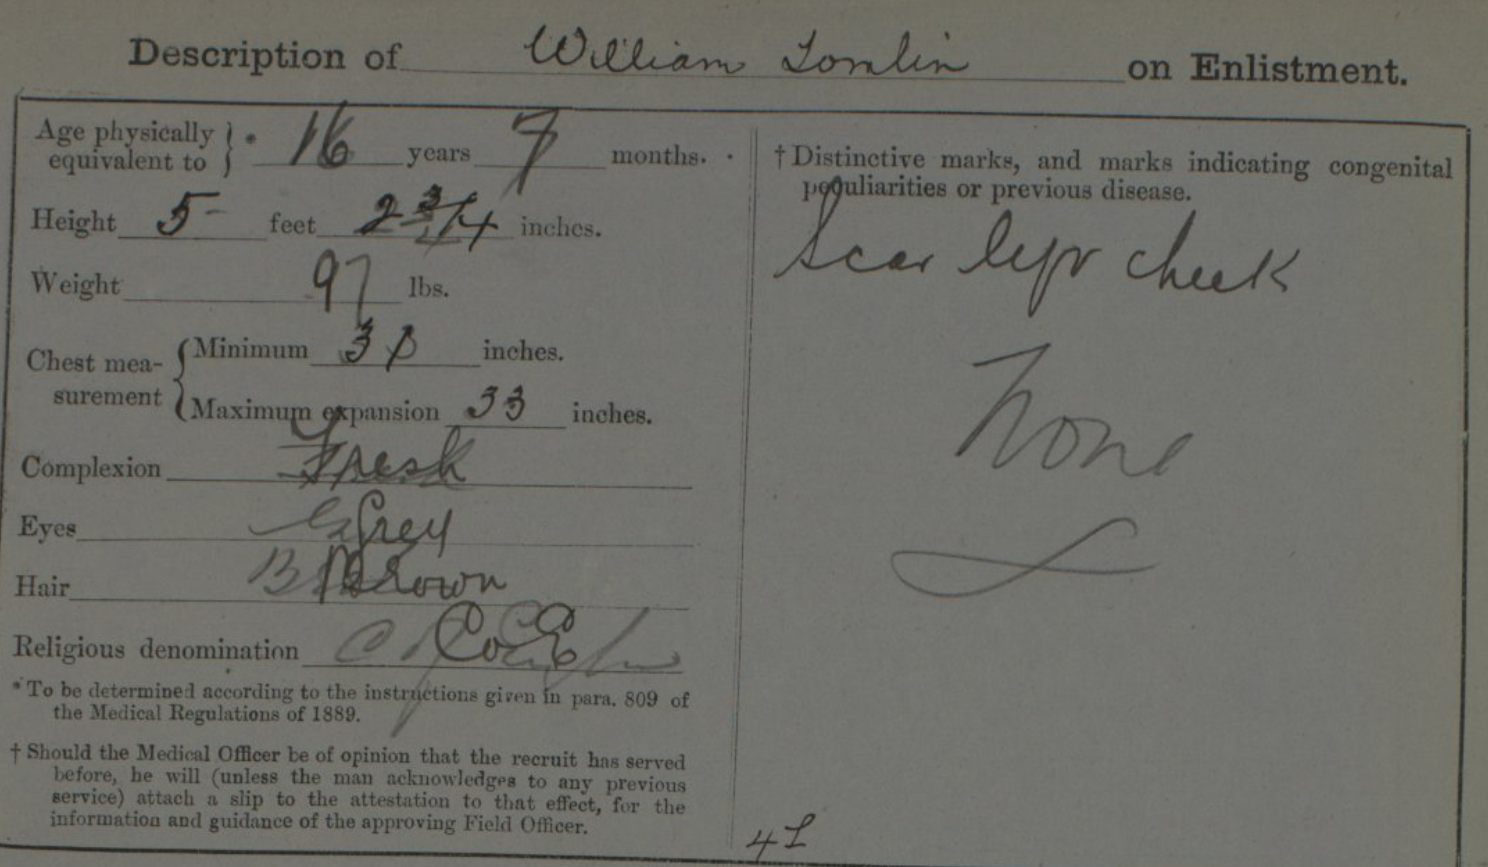 Description of William Tomlin on Enlistment.
Age physically equivalent to } * 16 years 7 months.
Height 5 feet 2 3/4 inches.
Weight 97 lbs.
Chest mea-surement { Minimum 30 inches.
Maximum expansion 33 inches.
Complexion Fresh
Eyes Grey
Hair Brown
Religious denomination C of E
* To be determined according to the instructions given in para. 809 of
the Medical Regulations of 1889.
† Should the Medical Officer be of opinion that the recruit has served
before, he will (unless the man acknowledges to any previous
service) attach a slip to the attestation to that effect, for the
information and guidance of the approving Field Officer.
† Distinctive marks, and marks indicating congenital
peculiarities or previous disease.
Scar left cheek
None